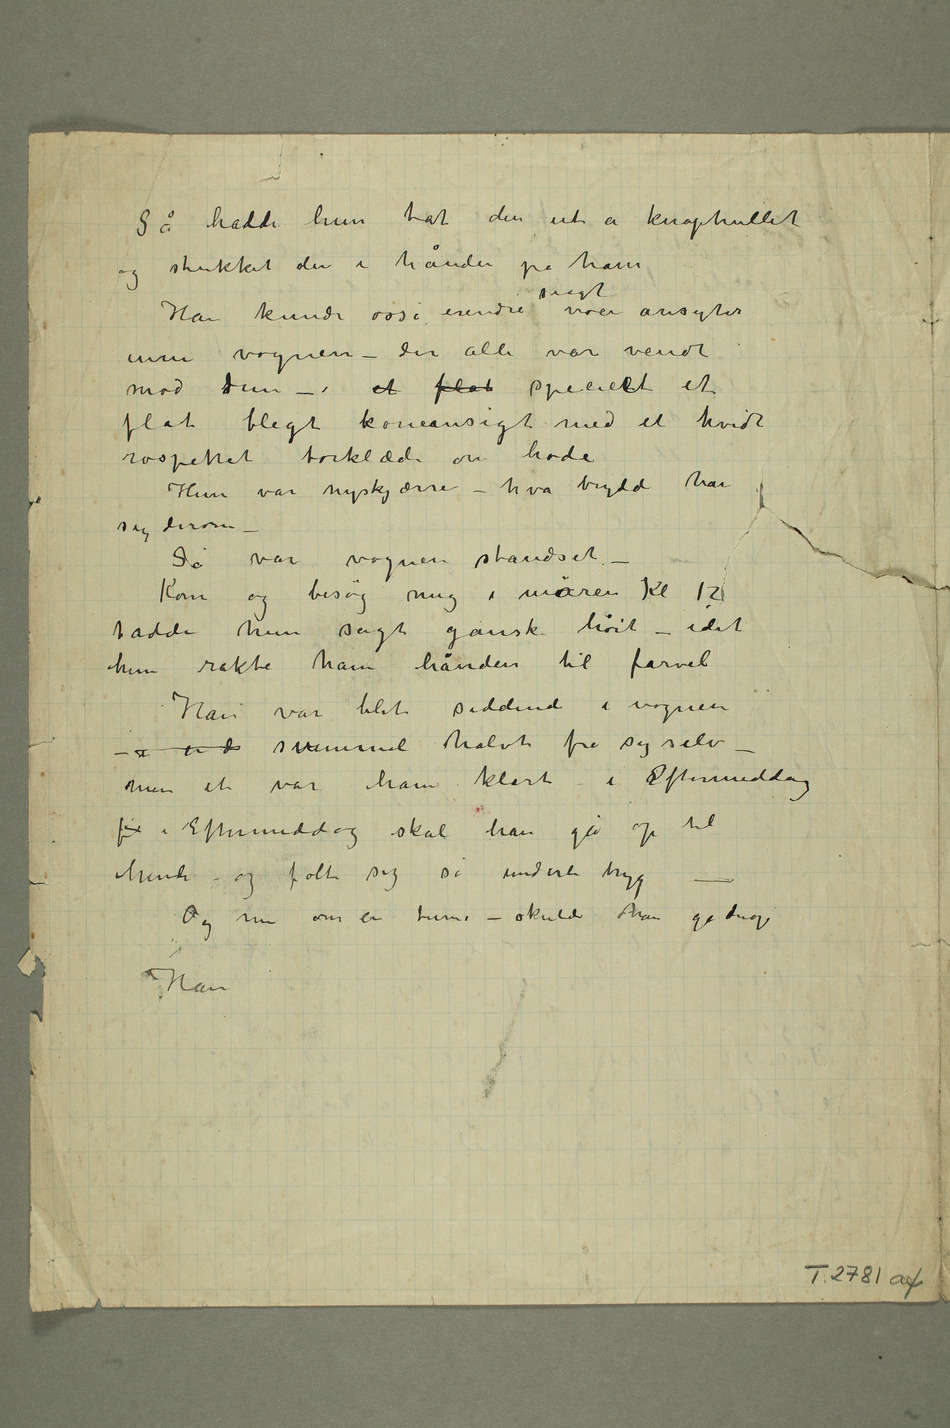 Så hadde hun tat den ut a knaphullet
og stukket den i hånden på ham
Han kunde osså erindre svagt
noen ansigter
inne vognen – der alle var vendt
mod dem – i et flat specielt et
flat blegt koneansigt med et hvidt
rospettet torklæde om hode
Hun var nyskjærrig – hva brydde han
sig derom –
Så var vognen standset –
Kom og besøg mig i måren Kl 12
hadde hun sagt gansk høit – idet
hun rakte ham hånden til farvel
Han var blet siddende i vognen
– svimmel halvt fra sig selv –
men et var ham klart – i Eftermiddag
i Eftermiddag skal han gå op til
hende – og følte sig så underli tryg –
Og nu om en time – skulde han gå derop
Han
T.2781 a4